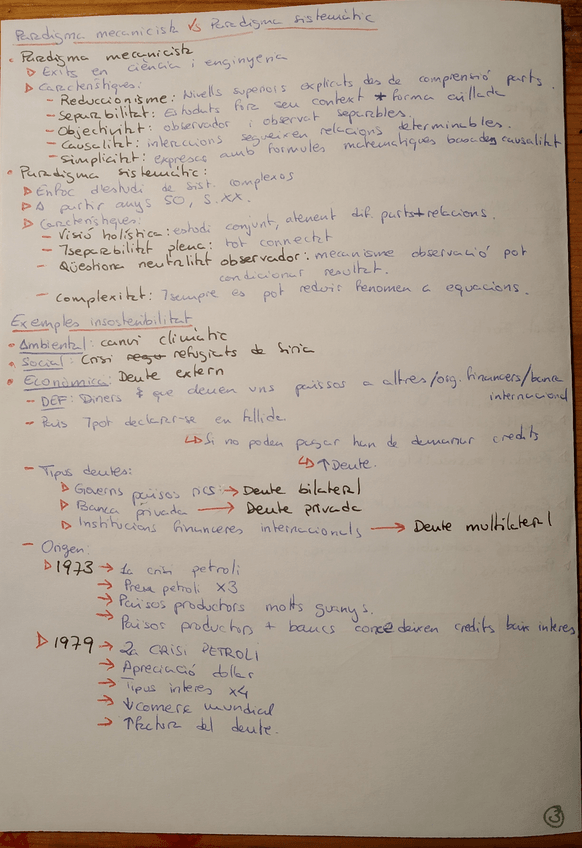 Paradigma mecanicista Vs Paradigma sistemàtic
• Paradigma mecanicista
▷ Èxits en ciència i enginyeria
▷ Característiques:
- Reduccionisme: Nivells superiors explicats des de comprensió parts.
- Separbilitat: Estudiats fora seu context + forma aïllada
- Objectivitat: observador i observat separables.
- Causalitat: interaccions segueixen relacions determinables.
- Simplicitat: expresar amb formules matemàtiques basades causalitat
• Paradigma sistemàtic:
▷ Enfoc d'estudi de sist. complexos
▷ A partir anys 50, S.XX.
▷ Característiques:
- Visió holística: estudi conjunt, atenent dif. parts+relacions.
- 7separbilitat plena: tot connectat
- Qüestiona neutralitat observador: mecanisme observació pot
condicionar resultat.
- Complexitat: 7sempre es pot reduir fenomen a equacions.
Exemples insostenibilitat
• Ambiental: canvi climàtic
• Social: Crisi refugiats de Siria
• Econòmica: Deute extern
- DEF: Diners que deuen uns països a altres/org. financers/banca
internacional
- País 7pot declarar-se en fallida
↳ Si no poden pagar han de demanar credits
↳ ↑Deute.
- Tipus deutes:
▷ Governs països rics: → Deute bilateral
▷ Banca privada → Deute privada
▷ Institucions financeres internacionals → Deute multilateral
- Origen:
▷ 1973 → 1a crisi petroli
→ Preu petroli x3
→ Països productors molts guanys.
→ Països productors + bancs concedeixen credits baix interes
▷ 1979 → 2a CRISI PETROLI
→ Apreciació dollar
→ Tipus interes x4
→ ↓comerç mundial
→ ↑factura del deute.
3